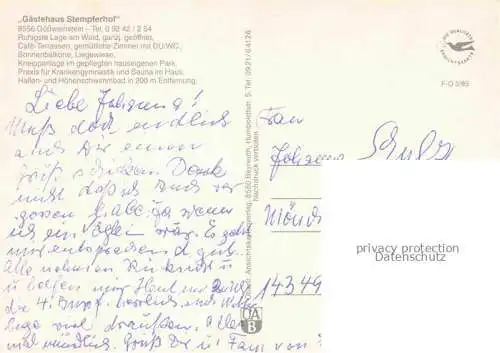 „Gästehaus Stempferhof"
8556 Gößweinstein – Tel. 0 92 42 / 2 54
Ruhigste Lage am Wald, ganzj. geöffnet,
Café-Terrassen, gemütliche Zimmer mit DU/WC,
Sonnenbalkone, Liegewiese,
Kneippanlage im gepflegten hauseigenen Park,
Praxis für Krankengymnastik und Sauna im Haus,
Hallen- und Höhenschwimmbad in 200 m Entfernung.
Liebe Johanna!
Muß doch endlich
auch Dir einen
schicken. Denk
nicht daß ich Dich ver
gessen habe ja wenn
ich ein Vöglein wär. Es geht
mir entsprechend gut.
Alle nehmen Rücksicht u
u helfen mir Heut
die 4. herrlich und
viel draußen. Alles
mündlich. Grüß Die u Frau von
Ansichtskartenverlag, 8580 Bayreuth, Humboldtstr. 5, Tel. 09 21 / 6 41 26
Nachdruck verboten
AB
DIE BELIEBTE
ANSICHTSKARTE
F-O 5/95
Frau
Johanna
Mönc
14349
privacy protection
Datenschutz